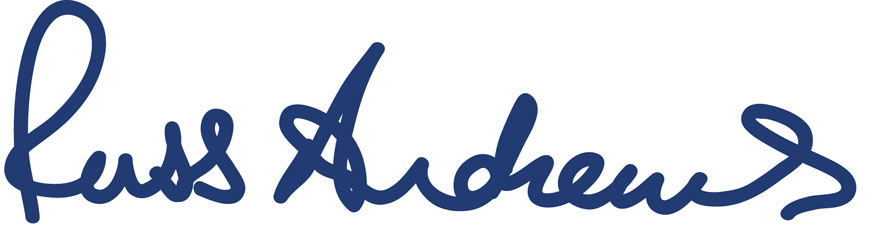 Russ Andrews